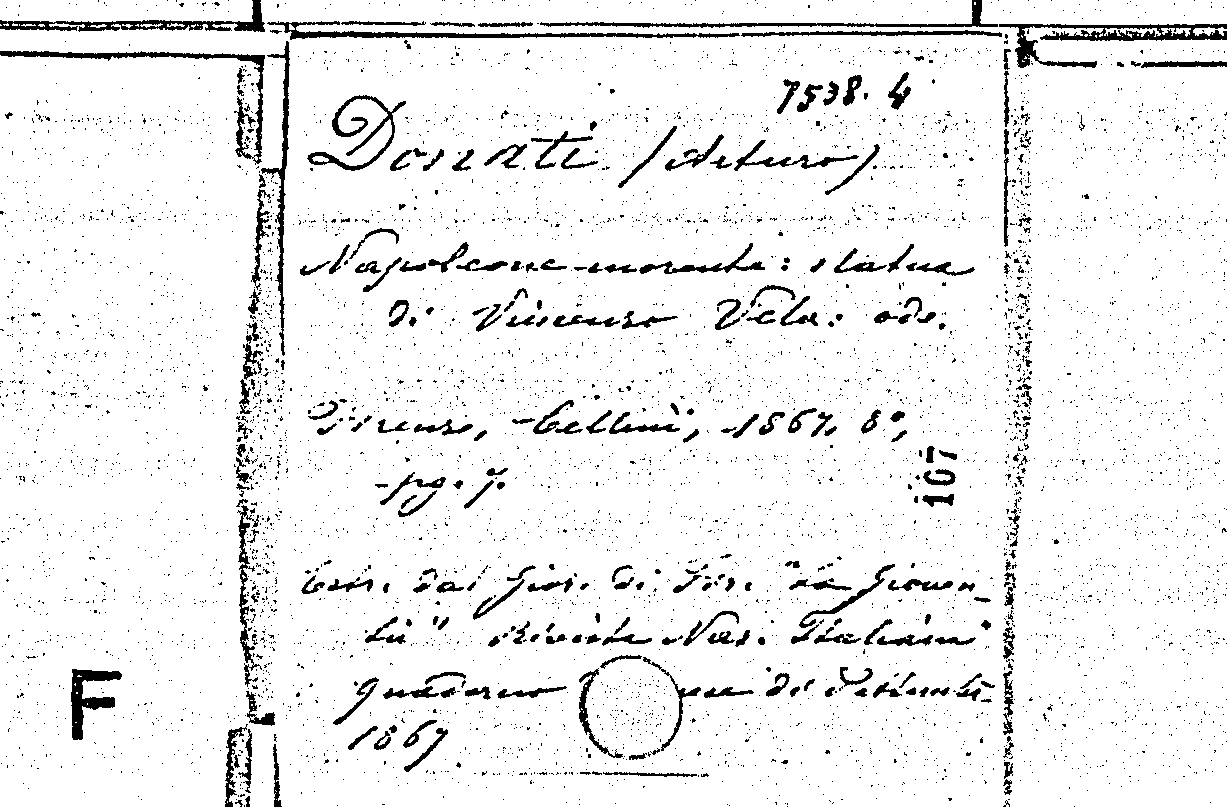 7538. 4
Donati (Arturo)
Napoleone morente: statua
di Vincenzo Vela: ode.
Firenze, Cellini, 1867, 8°,
pg. 7.
107
Estr. dal Gior. di Fir. "La Gioven-
tù" Rivista Naz. Italiana"
quaderno di Settembre
1867
F